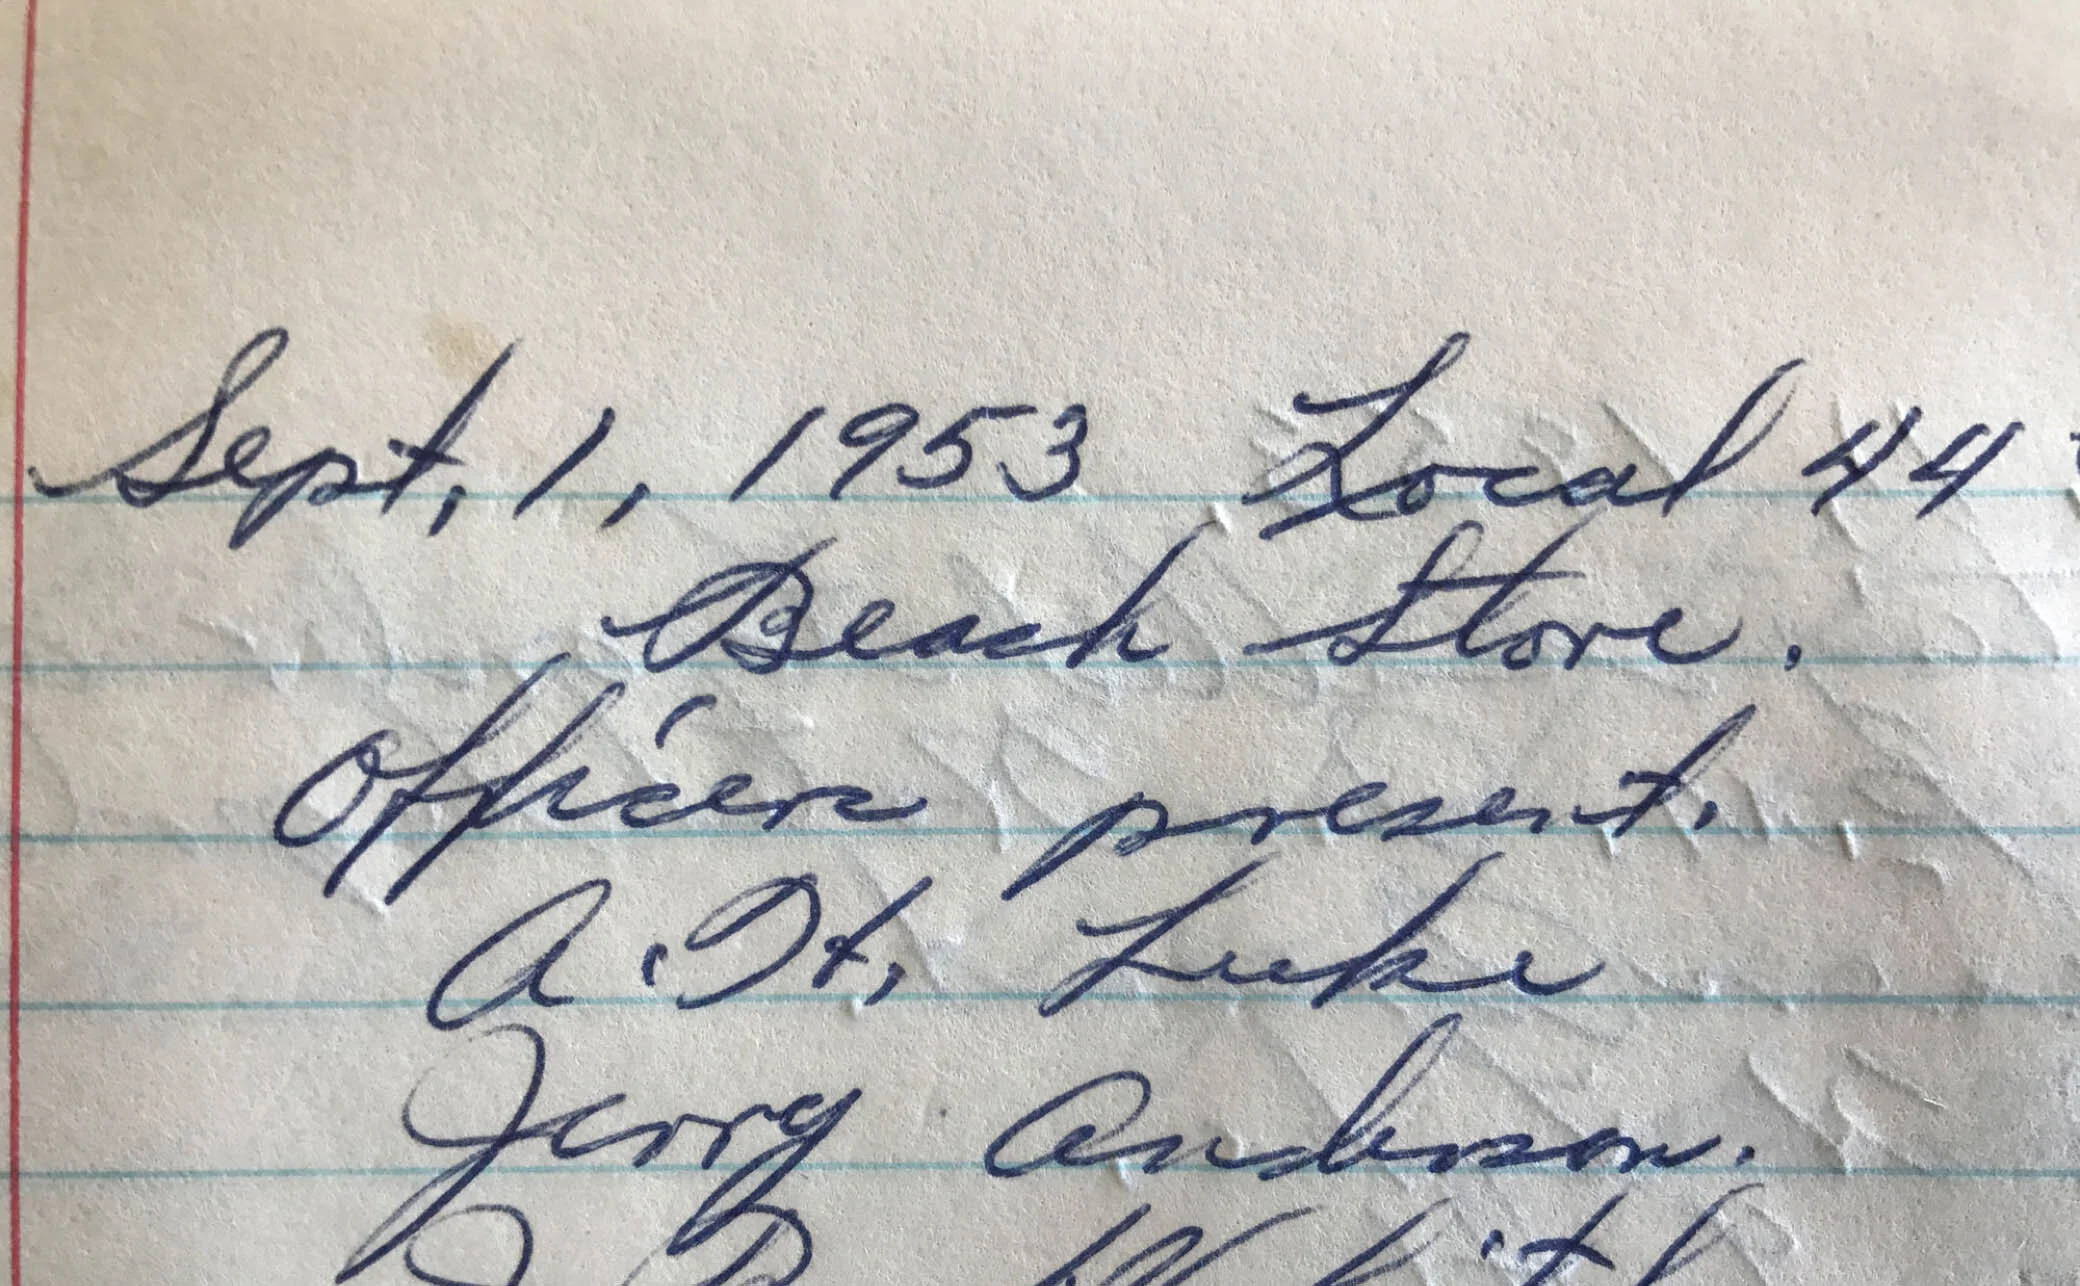 Sept. 1, 1953 Local 44
Beach Store.
Officers present.
A. H. Luke
Jerry Anderson.